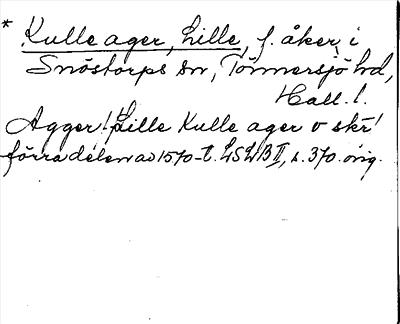 * Kulle ager, Lille, f. åker i
Snöstorps sn, Tönnersjö hd,
Hall. l.
Agger! Lille Kulle ager o skr!
förra delen av 1570-t. LSLB II, s. 370. orig.